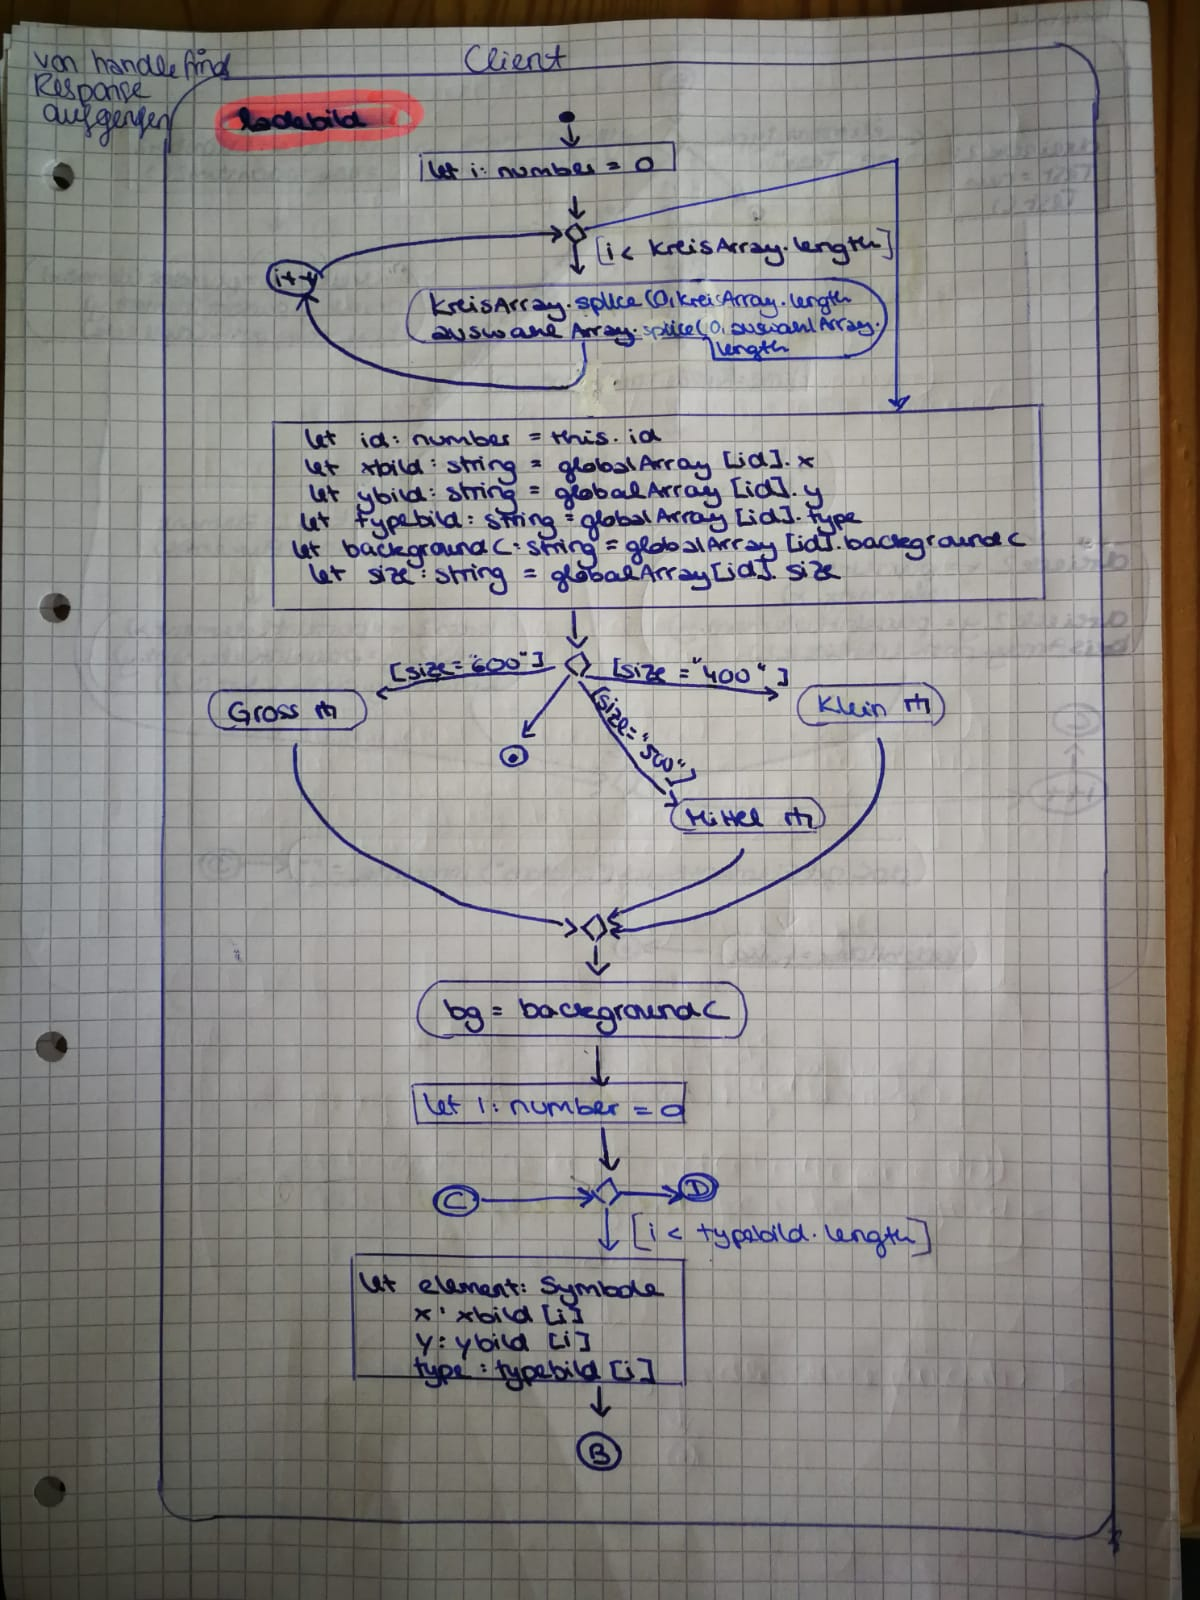 Client
von handlefind
Response
aufgerufen
ladebild
let i: number = 0
[i < KreisArray.length]
i++
KreisArray.splice(0,KreisArray.length
auswahl Array.splice(0,auswahlArray.
length
let id: number = this.id
let xbild: string = globalArray [id].x
let ybild: string = globalArray [id].y
let typebild: string = globalArray [id].type
let backgroundC: string = globalArray [id].backgroundC
let size: string = globalArray[id].size
[size="600"]
[size="400"]
[size="500"]
Gross
Klein
Mittel
bg = backgroundC
let i: number = 0
C
D
[i < typebild.length]
let element: Symbole
x: xbild [i]
y: ybild [i]
type: typebild [i]
B